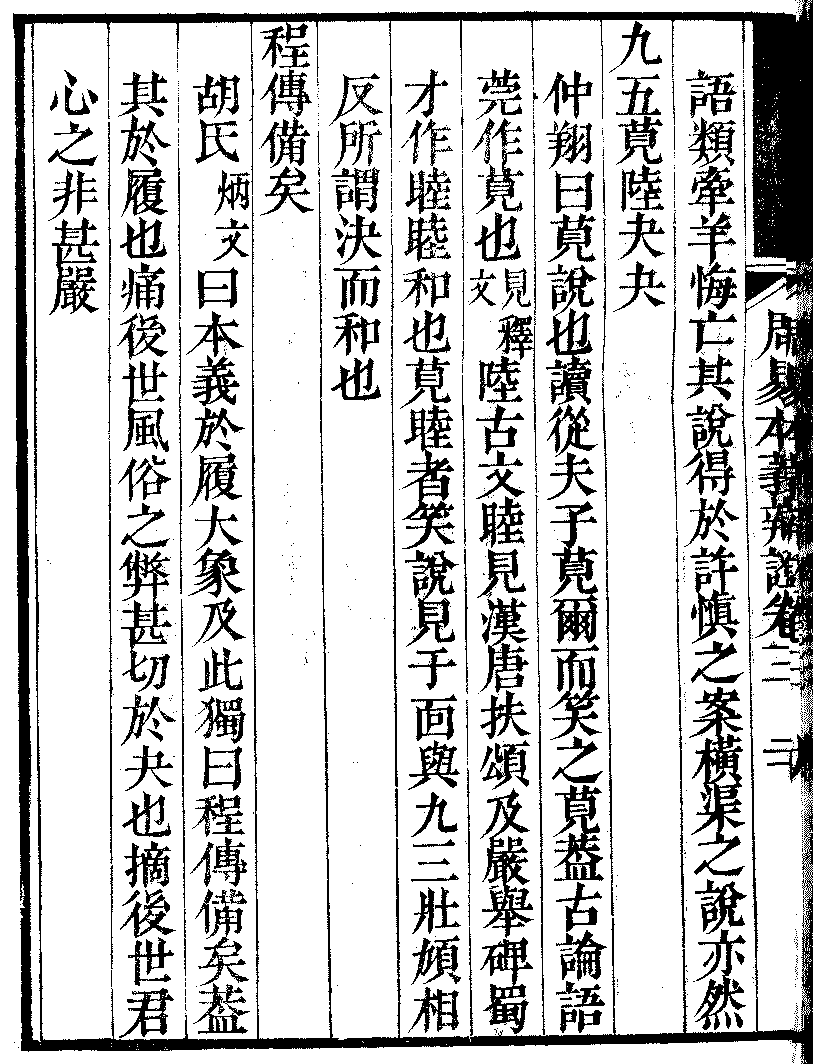 周易本義辨證卷三　二
語類牽羊悔亡其說得於許慎之案橫渠之說亦然
九五莧陸夬夬
仲翔曰莧說也讀從夫子莧爾而笑之莧葢古論語
莞作莧也見釋文陸古文睦見漢唐扶頌及嚴舉碑蜀
才作睦睦和也莧睦者笑說見于面與九三壯頄相
反所謂決而和也
程傳備矣
胡氏炳文曰本義於履大象及此獨曰程傳備矣葢
其於履也痛後世風俗之弊甚切於夬也摘後世君
心之非甚嚴